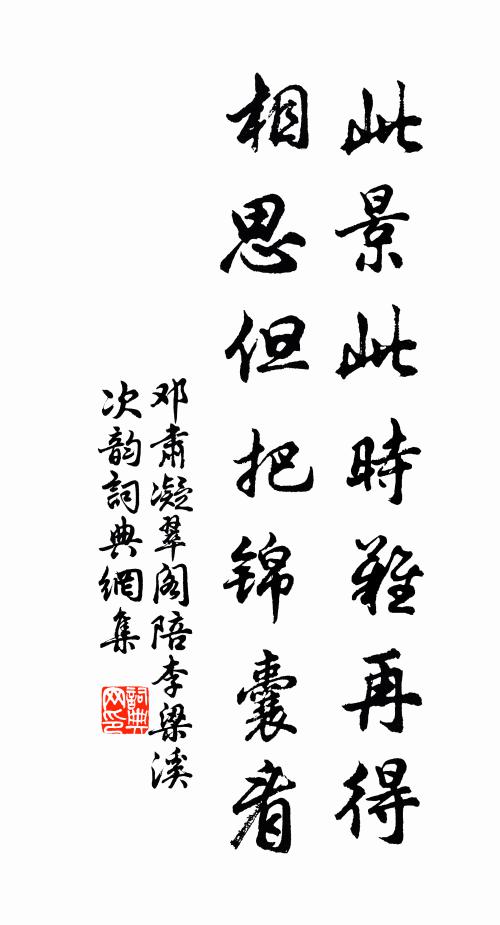 此景此時難再得
相思但把锦囊看
邓肃凝翠阁陪李梁溪
次韵詞典網集
詞典网印